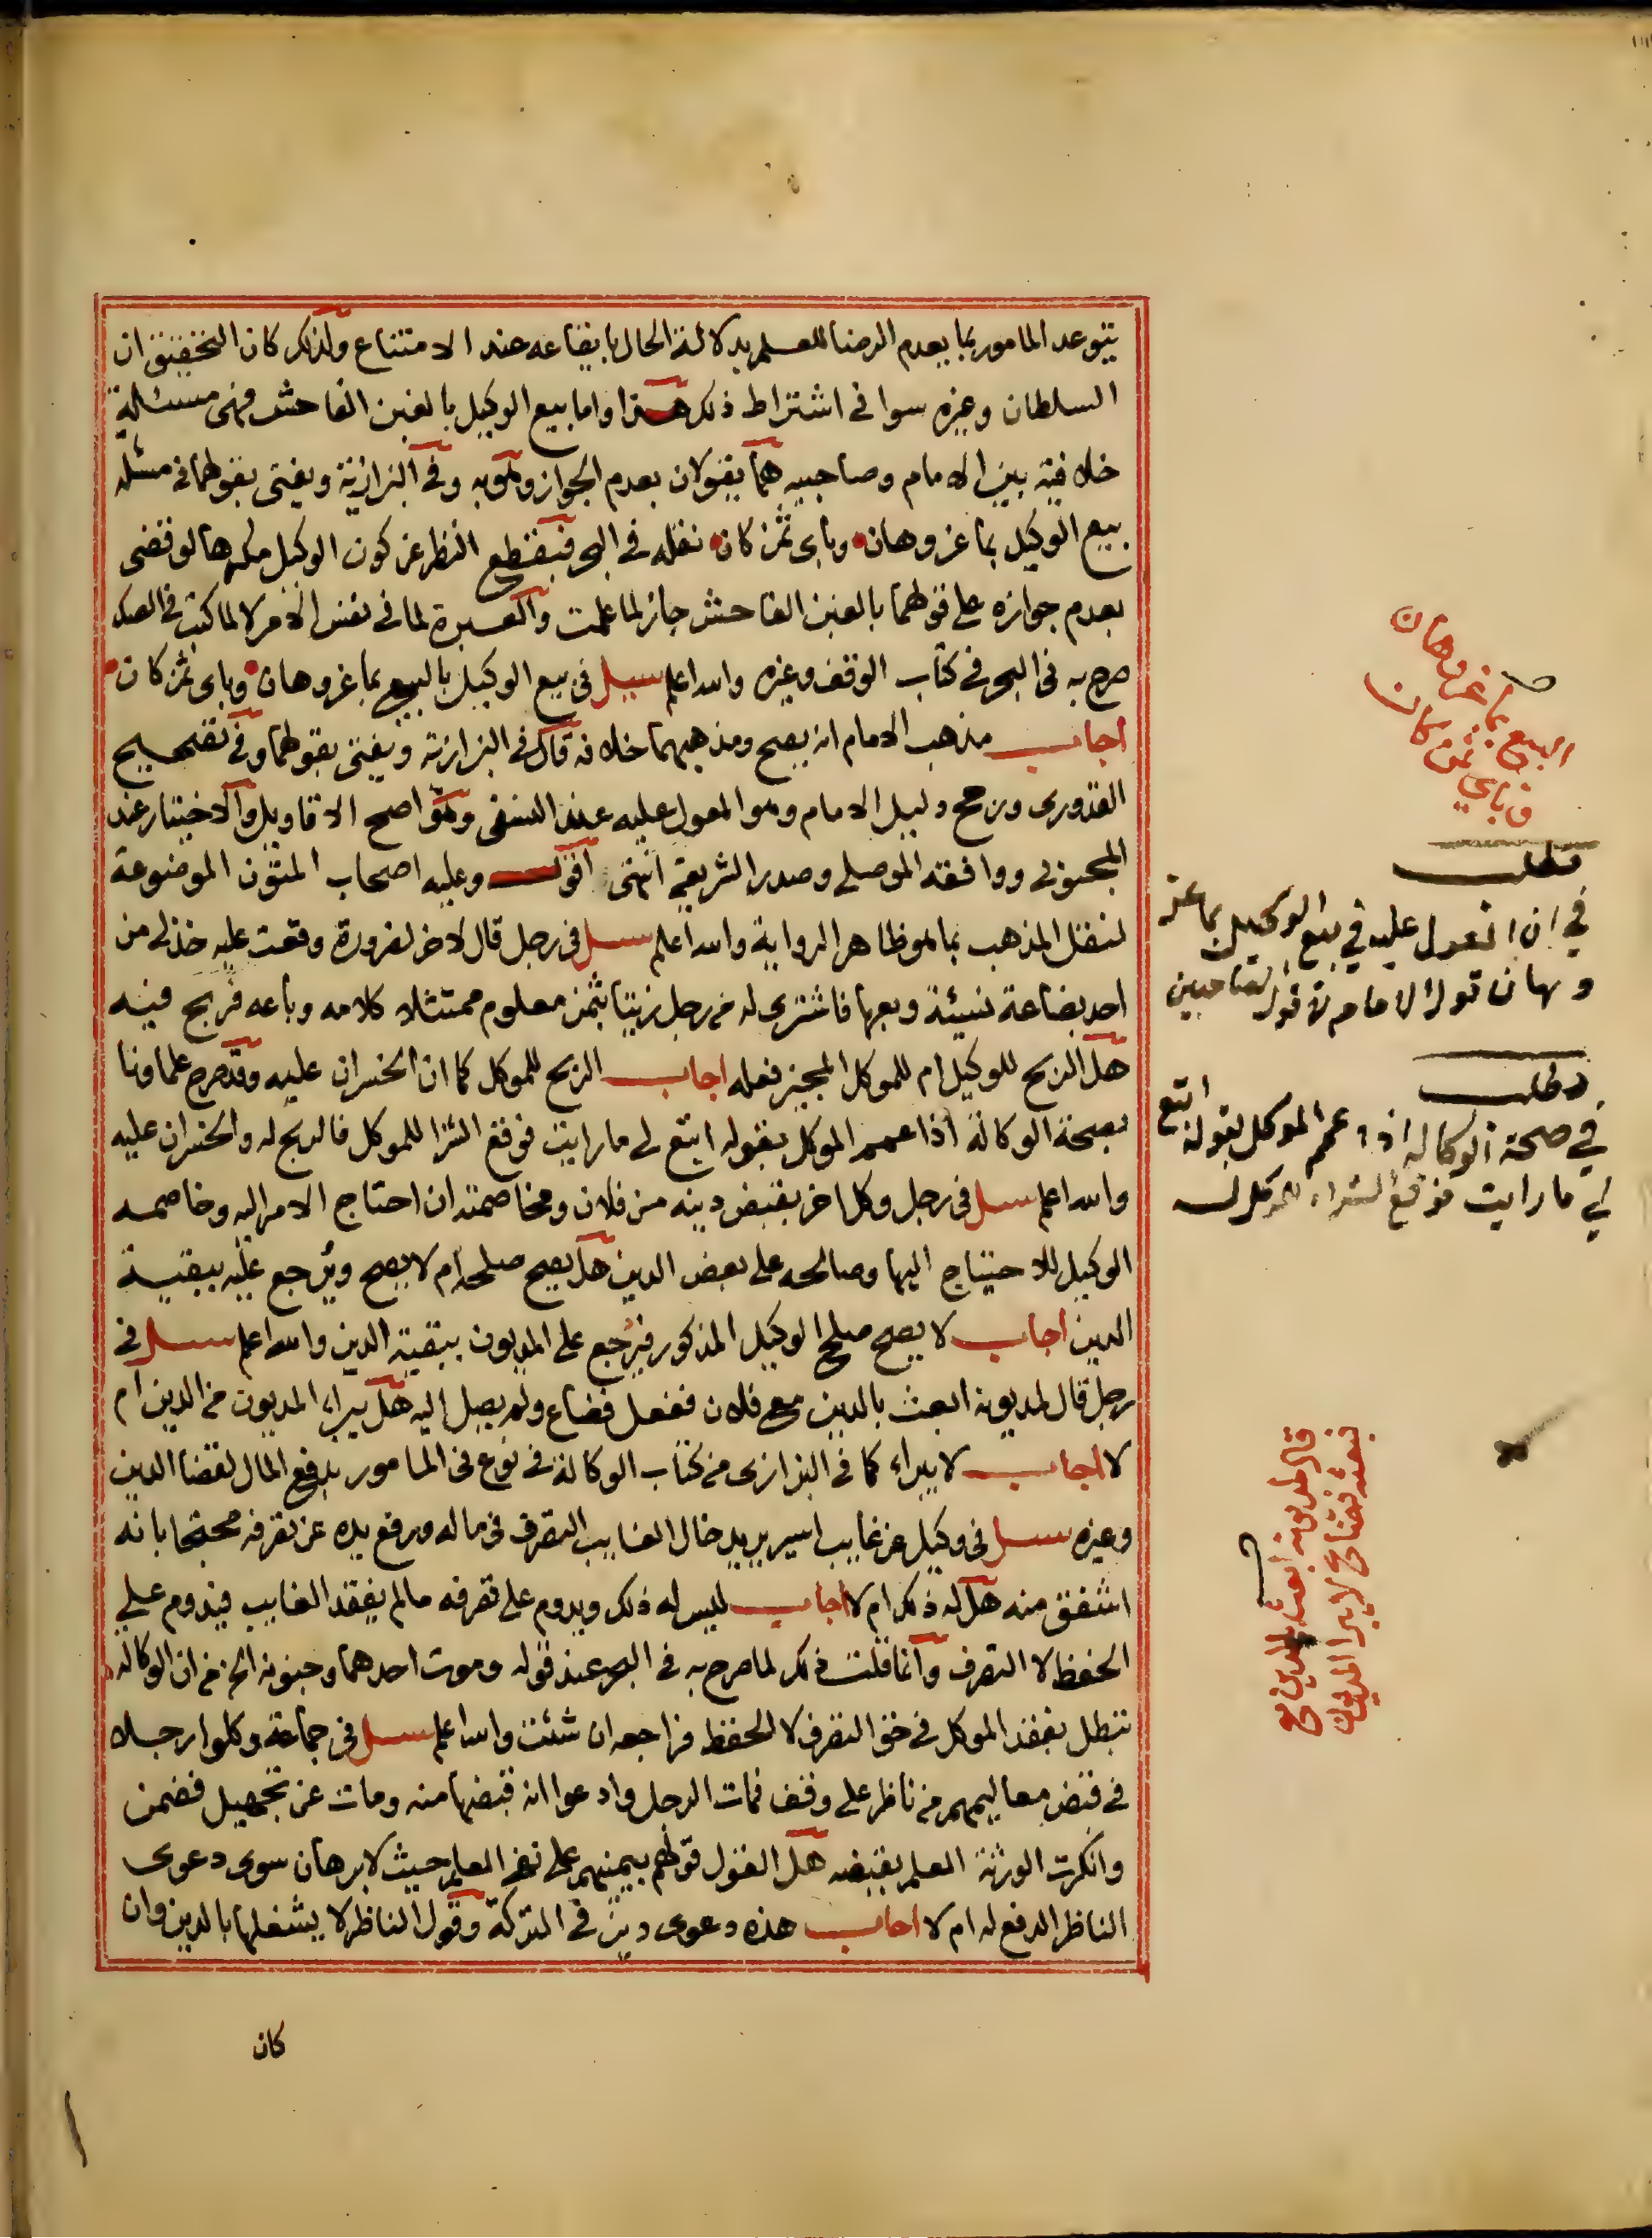 يتوعد المامور بما يعدم الرضا للعلم بدلالة الحال بايقاعه عند الامتناع ولذلك كان التحقيق ان
السلطان وغيره سوا في اشتراط ذلك هذا واما بيع الوكيل بالغبن الفاحش فهى مسئلة
خلافية بين الامام وصاحبيه هما يقولان بعدم الجواز وهو به وفي البزازية ويفتى بقولهما في مسئلة
بيع الوكيل بما عز وهان وباى ثمن كان نقله في البحر فبقطع النظر عن كون الوكيل مكرها لو قضى
بعدم جوازه على قولهما بالغبن الفاحش جاز لما علمت والعبرة لما في نفس الامر لا لما كتب في الصك
صرح به في البحر في كتاب الوقف وغيره والله اعلم سيل في بيع الوكيل بالبيع بما عز وهان وباى ثمن كان
اجاب مذهب الامام انه يصح ومذهبهما خلافه قال في البزازية ويفتى بقولهما وفي تصحيح
القدورى ورجح دليل الامام وهو المعول عليه عند النسفى وهو اصح الاقاويل والاختيار عند
المحبوبي ووافقه الموصلي وصدر الشريعة انتهى اقول وعليه اصحاب المتون الموضوعة
لنقل المذهب بما هو ظاهر الرواية والله اعلم سيل في رجل قال لاخر لضرورة وقعت عليه خذ لي من
احد بضاعة نسيئة وبعها فاشترى له من رجل زيتا بثمن معلوم ممتثلا كلامه وباعه فربح فيه
هل الربح للوكيل ام للموكل المجيز فعله اجاب الربح للموكل كما ان الخسران عليه وقد صرح علماونا
بصحة الوكالة اذا عمم الموكل بقوله ابتع لي ما رايت فوقع الشرا للموكل فالربح له والخسران عليه
والله اعلم سيل في رجل وكل اخر بقبض دينه من فلان ومخاصمته ان احتاج الامر اليه وخاصمه
الوكيل للاحتياج اليها وصالحه على بعض الدين هل يصح صلحه ام لا يصح ويرجع عليه ببقية
الدين اجاب لا يصح صلح الوكيل المذكور فيرجع على المديون ببقية الدين والله اعلم سيل في
رجل قال لمديونه ابعث بالدين مع فلان ففعل فضاع ولم يصل اليه هل يبراء المديون من الدين ام
لا اجاب لا يبراء كما في البزازى من كتاب الوكالة في نوع في المامور بدفع المال لقضا الدين
وغيره سيل في وكيل عن غايب اسير يريد خال الغايب التصرف في ماله ورفع يده عن تصرفه محتجا بانه
اشفق منه هل له ذلك ام لا اجاب ليس له ذلك ويدوم على تصرفه مالم يفقد الغايب فيدوم على
الحفظ لا التصرف وانما قلت ذلك لما صرح به في البحر عند قوله وموت احدهما وجنونه الخ من ان الوكالة
تبطل بفقد الموكل في حق التصرف لا الحفظ فراجعه ان شئت والله اعلم سيل في جماعة وكلوا رجلا
في قبض معاليمهم من ناظر على وقف فمات الرجل وادعوا انه قبضها منه ومات عن تجهيل فضمن
وانكرت الورثة العلم بقبضه هل القول قولهم بيمينهم على نفي العلم حيث لا برهان سوى دعوى
الناظر الدفع له ام لا اجاب هذه دعوى دين في التركة وقول الناظر لا يشغلها بالدين وان
كان
البيع بما عز وهان
وباي ثمن كان
مطلب
في ان المعول عليه في بيع الوكيل بما عز
وهان قول الامام لا قول الصاحبين
مطلب
في صحة الوكالة اذا عمم الموكل بقوله ابتع
لي ما رايت فوقع الشراء للموكل
قال لمديونه ابعث بالدين مع
فبعثه فضاع لا يبرا المديون